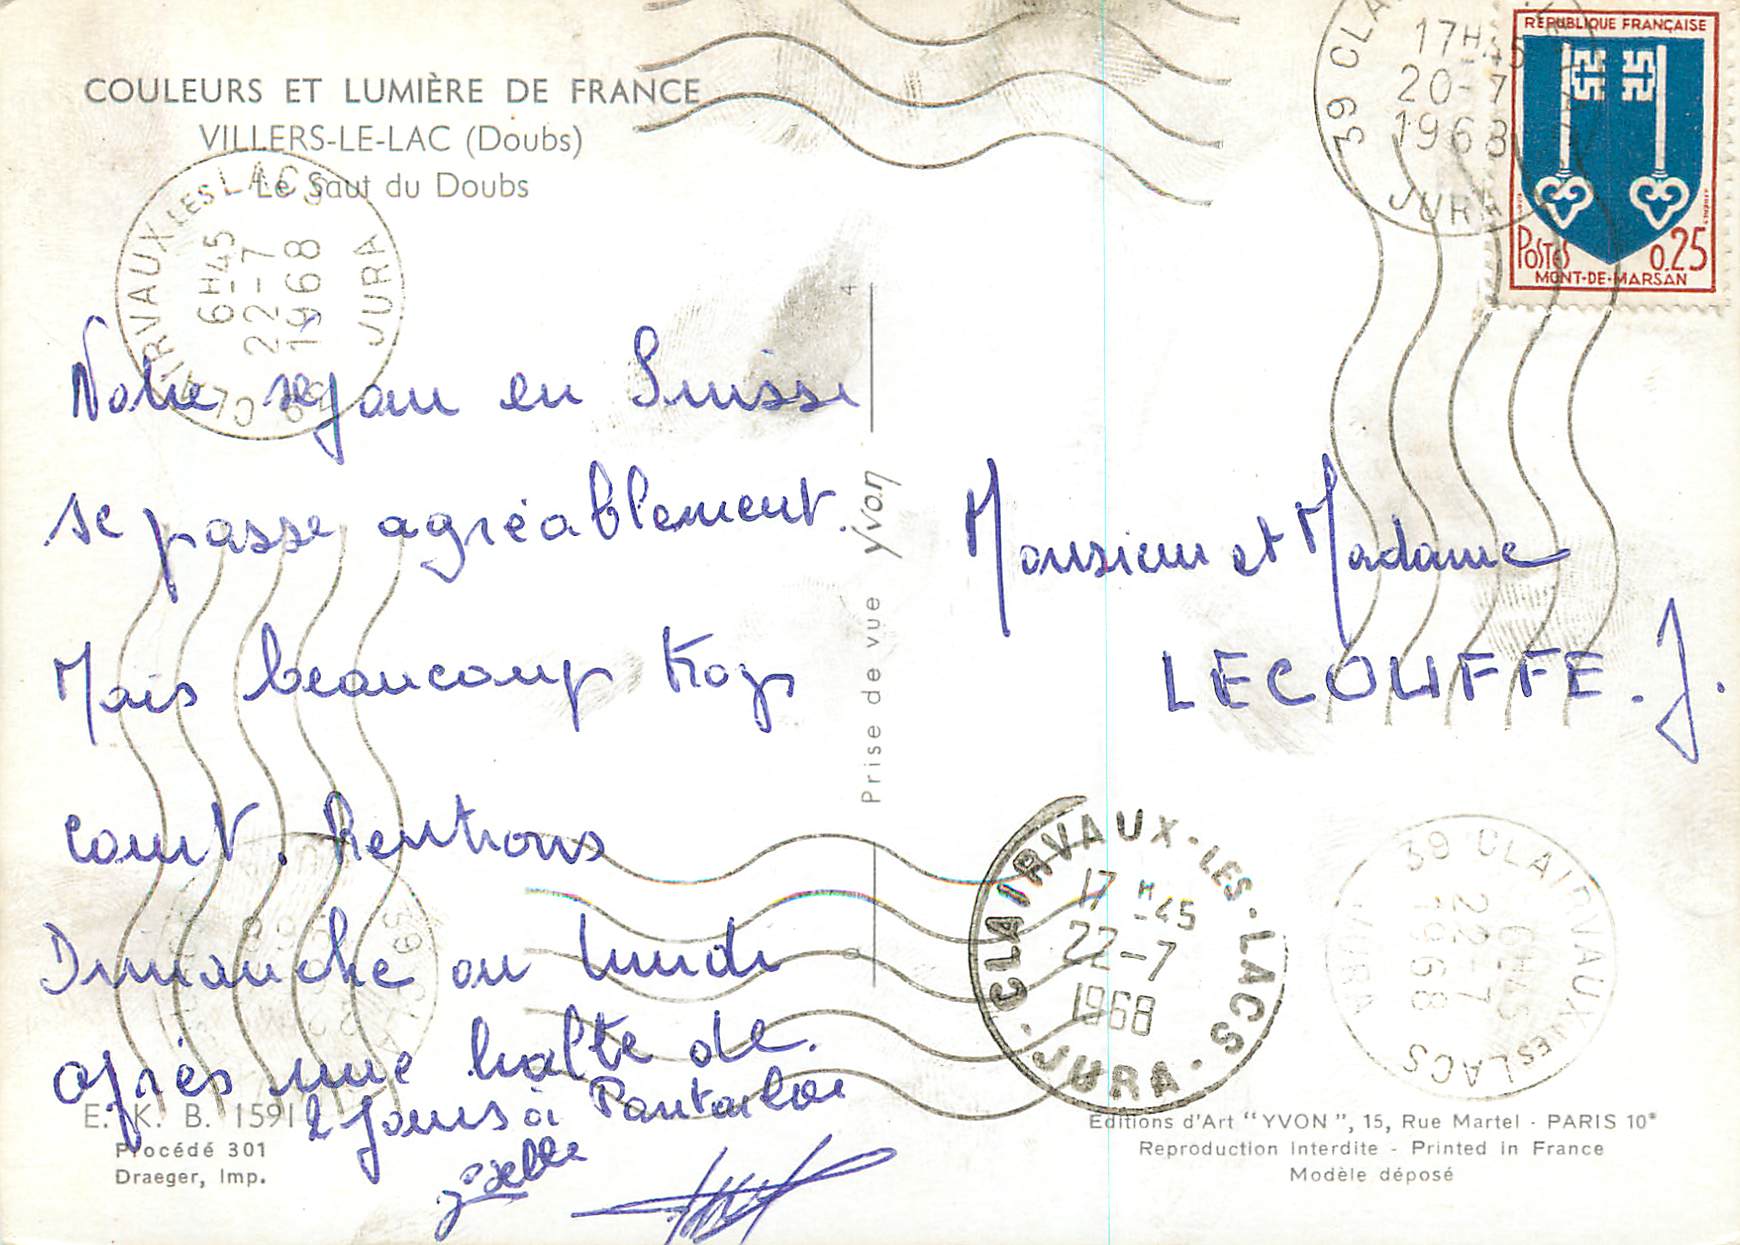 COULEURS ET LUMIÈRE DE FRANCE
VILLERS-LE-LAC (Doubs)
Le Saut du Doubs
CLAIRVAUX LES LACS
6H45
22-7
1968
JURA
39 CLA
17H45
20-7
1968
JURA
RÉPUBLIQUE FRANÇAISE
POSTES
0.25
MONT-DE-MARSAN
Notre séjour en Suisse
se passe agréablement.
Mais beaucoup trop
court. Rentrons
Dimanche ou lundi
après une halte de
2 jours à Pontarlier
Giselle
Prise de vue Yvon
Monsieur et Madame
LECOUFFE. J.
CLAIRVAUX-LES-LACS
17H45
22-7
1968
JURA
39 CLAIRVAUX LES LACS
6H45
22-7
1968
JURA
E. K. B. 1591
Procédé 301
Draeger, Imp.
Editions d'Art "YVON", 15, Rue Martel - PARIS 10e
Reproduction Interdite - Printed in France
Modèle déposé